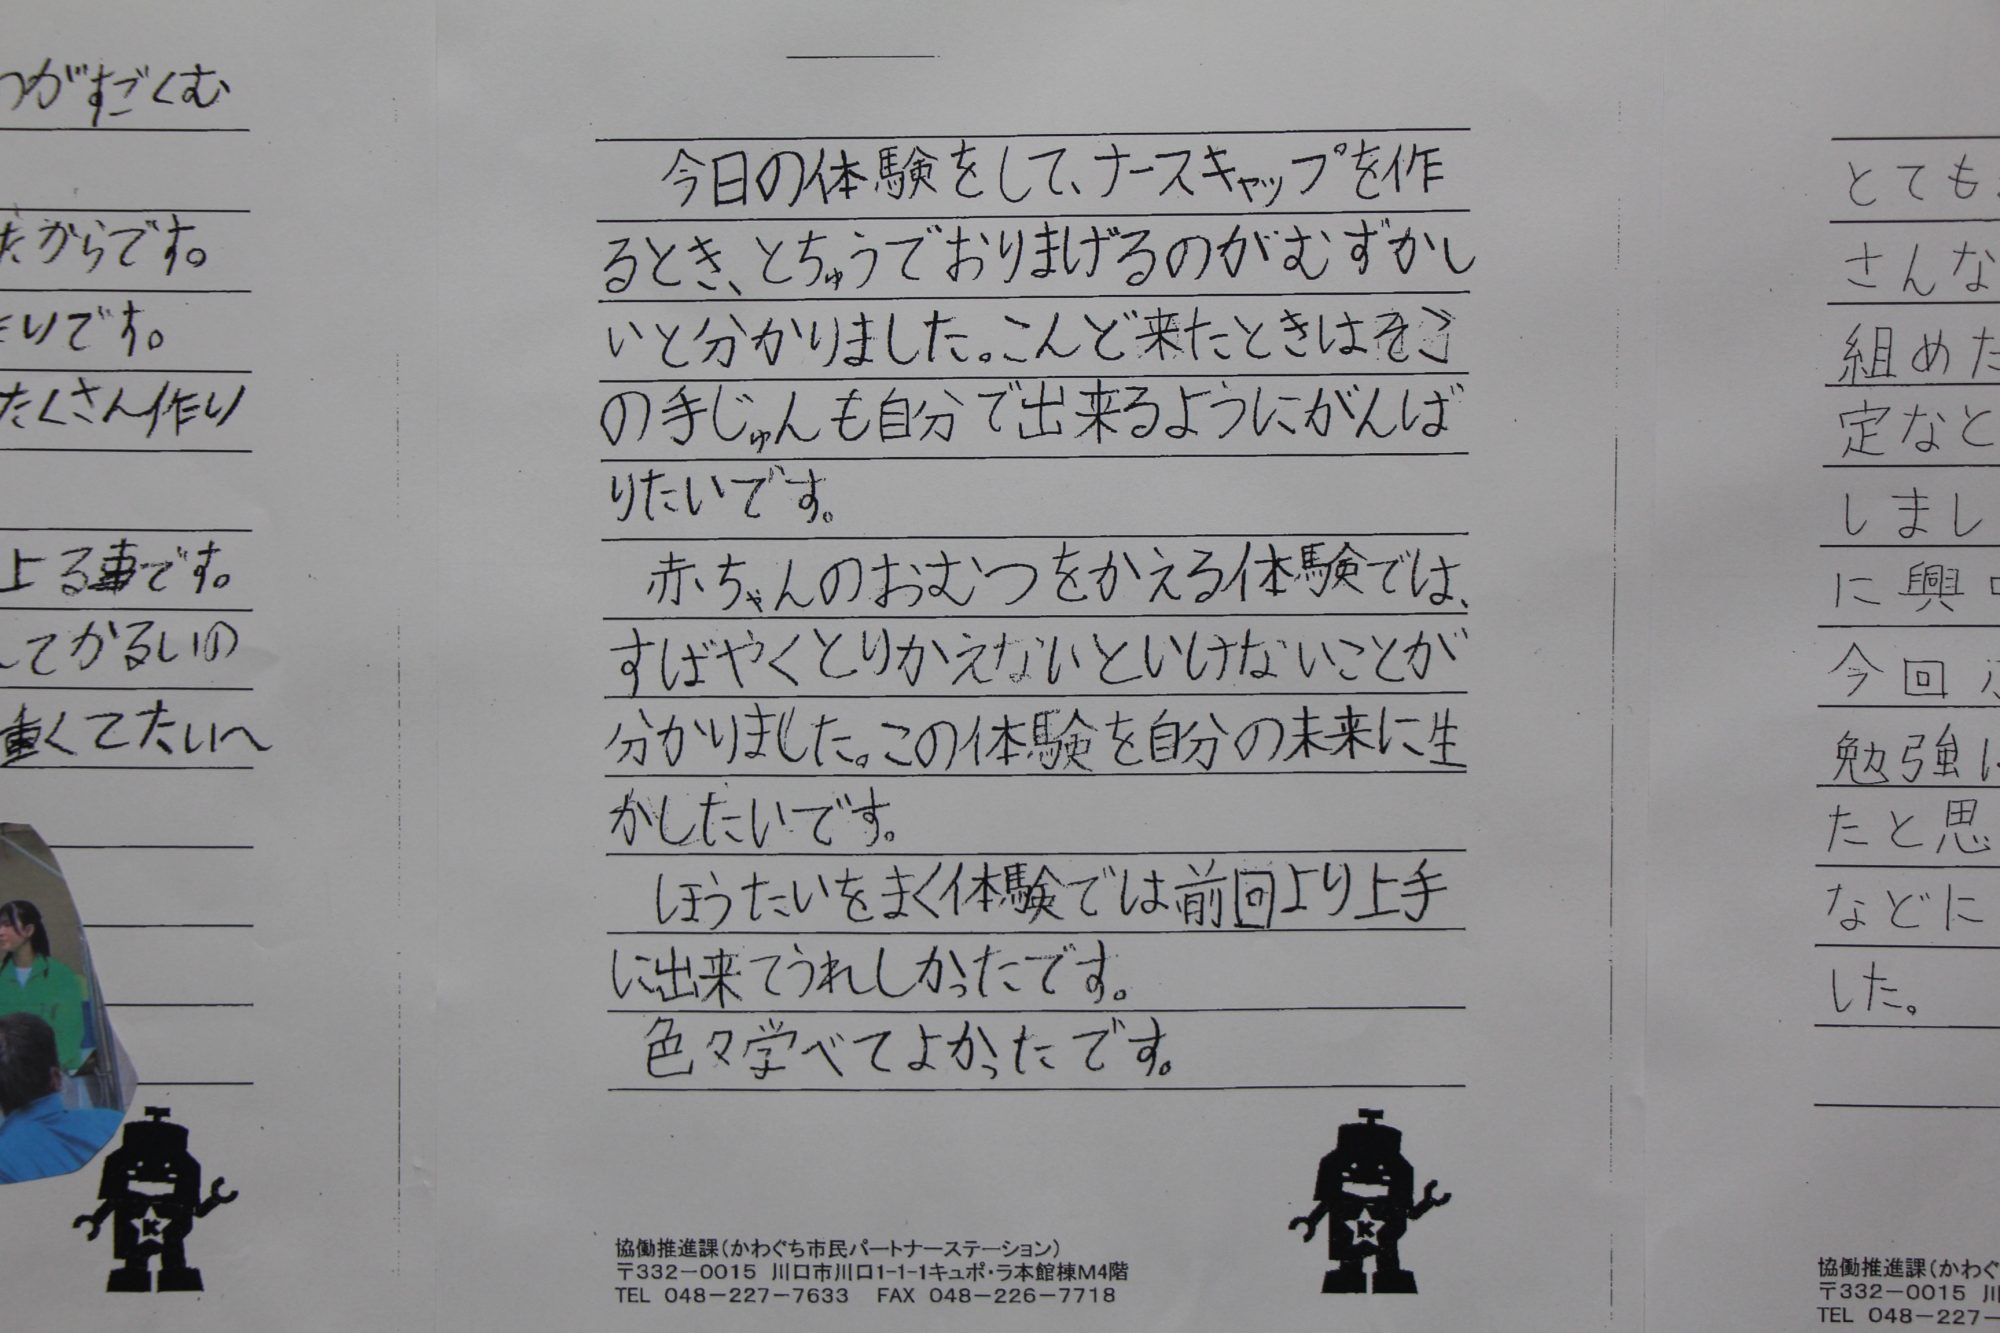 つがすごくむ
たからです。
いです。
たくさん作り
上る事です。
してかるいの
重くてたいへ
今日の体験をして、ナースキャップを作
るとき、とちゅうでおりまげるのがむずかし
いと分かりました。こんど来たときはそこ
の手じゅんも自分で出来るようにがんば
りたいです。
赤ちゃんのおむつをかえる体験では、
すばやくとりかえないといけないことが
分かりました。この体験を自分の未来に生
かしたいです。
ほうたいをまく体験では前回より上手
に出来てうれしかったです。
色々学べてよかったです。
K
K
協働推進課(かわぐち市民パートナーステーション)
〒332-0015 川口市川口1-1-1キュポ・ラ本館棟M4階
TEL 048-227-7633 FAX 048-226-7718
とても
さんな
組めた
定なと
しまし
に興
今回
勉強に
たと思
などに
した。
協働推進課(かわぐ
〒332-0015 川
TEL 048-227-